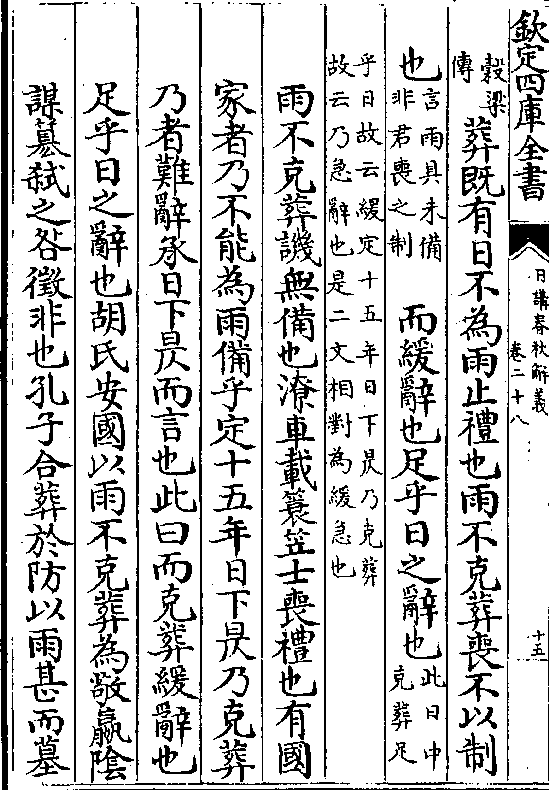 欽定四庫全書
日講春秋解義
卷二十八
十五
穀梁
傳
葬既有日不為雨止禮也雨不克葬喪不以制
也
言雨具未備
非君喪之制
而緩辭也足乎日之辭也
此日中
克葬足
乎日故云緩定十五年日下昃乃克葬
故云乃急辭也是二文相對為緩急也
雨不克葬譏無備也潦車載蓑笠士喪禮也有國
家者乃不能為雨備乎定十五年日下昃乃克葬
乃者難辭承日下昃而言也此曰而克葬緩辭也
足乎日之辭也胡氏安國以雨不克葬為敬嬴陰
謀篡弒之咎徵非也孔子合葬於防以雨甚而墓